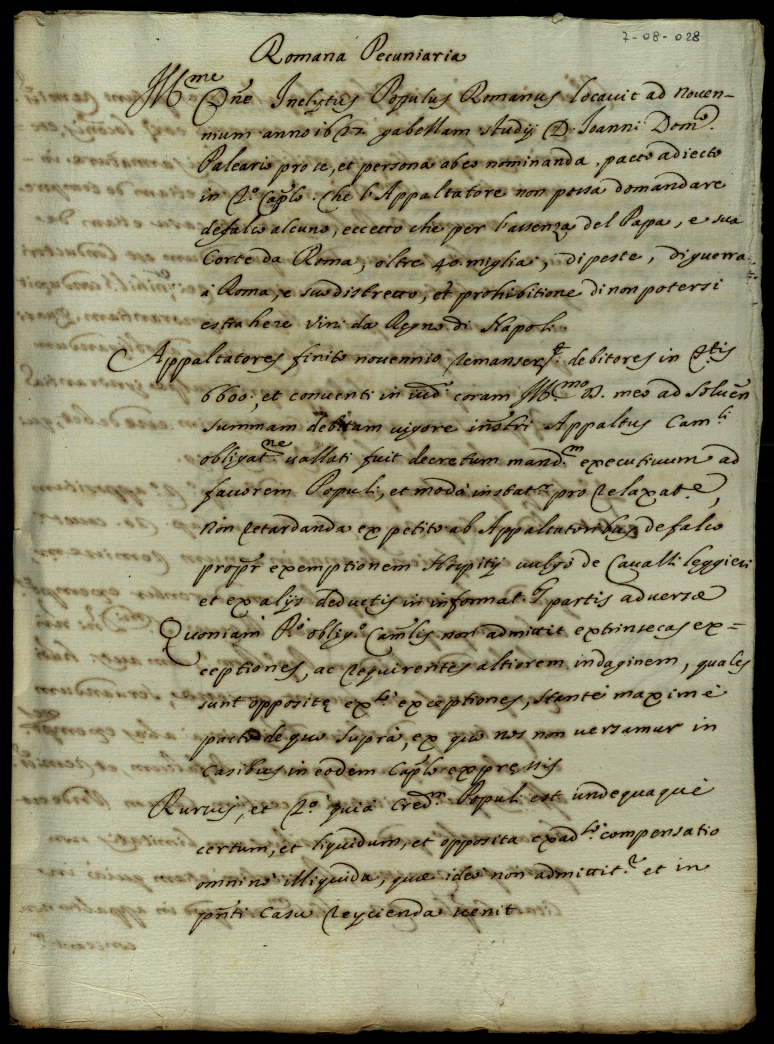 7-08-028
Romana Pecuniaria
Ill.me
D.ne Inclytus Populus Romanus locavit ad noven=
nium anno 1622 gabellam studij D. Joanni Dom.o
Paleario pro se, et persona ab eo nominanda, pacto adiecto
in 2.o Cap.lo. Che l'Appaltatore non possa domandare
defalco alcuno, eccetto che per l'assenza del Papa, e sua
Corte da Roma, oltre 40 miglia, di peste, di guerra
à Roma, e suo distretto, et prohibitione di non potersi
estrahere vini da Regno di Napoli
Appaltatores finito novennio remanser.t debitores in
6600; et conventi in coram Ill.mo D. meo ad solven
summam debitam vigore instri Appaltus Cam.li
obligat.ne vallati fuit decretum mand.m executivum ad
favorem Populi, et modò instat.r pro relaxat.e,
non retardanda ex petito ab Appaltatoribus defalco
propr exemptionem Hospitij vulgò de Cavalli leggieri
et ex alijs deductis in informat.e partis adversae
Quoniam P.o oblig.o Cam.lis non admittit extrinsecas ex=
ceptiones, ac requirentes altiorem indaginem, quales
sunt oppositę ex.to exceptiones, stante maximè
pacto de quo suprà, ex quo nos non versamur in
casibus in eodem Cap.lo expressis
Rursus, et 2.o quia Cred.m Populi est undequaquè
certum, et liquidum, et opposita ex ad.to compensatio
omninò illiquida, quae ideo non admittit.r et in
pnti casu reijcienda venit